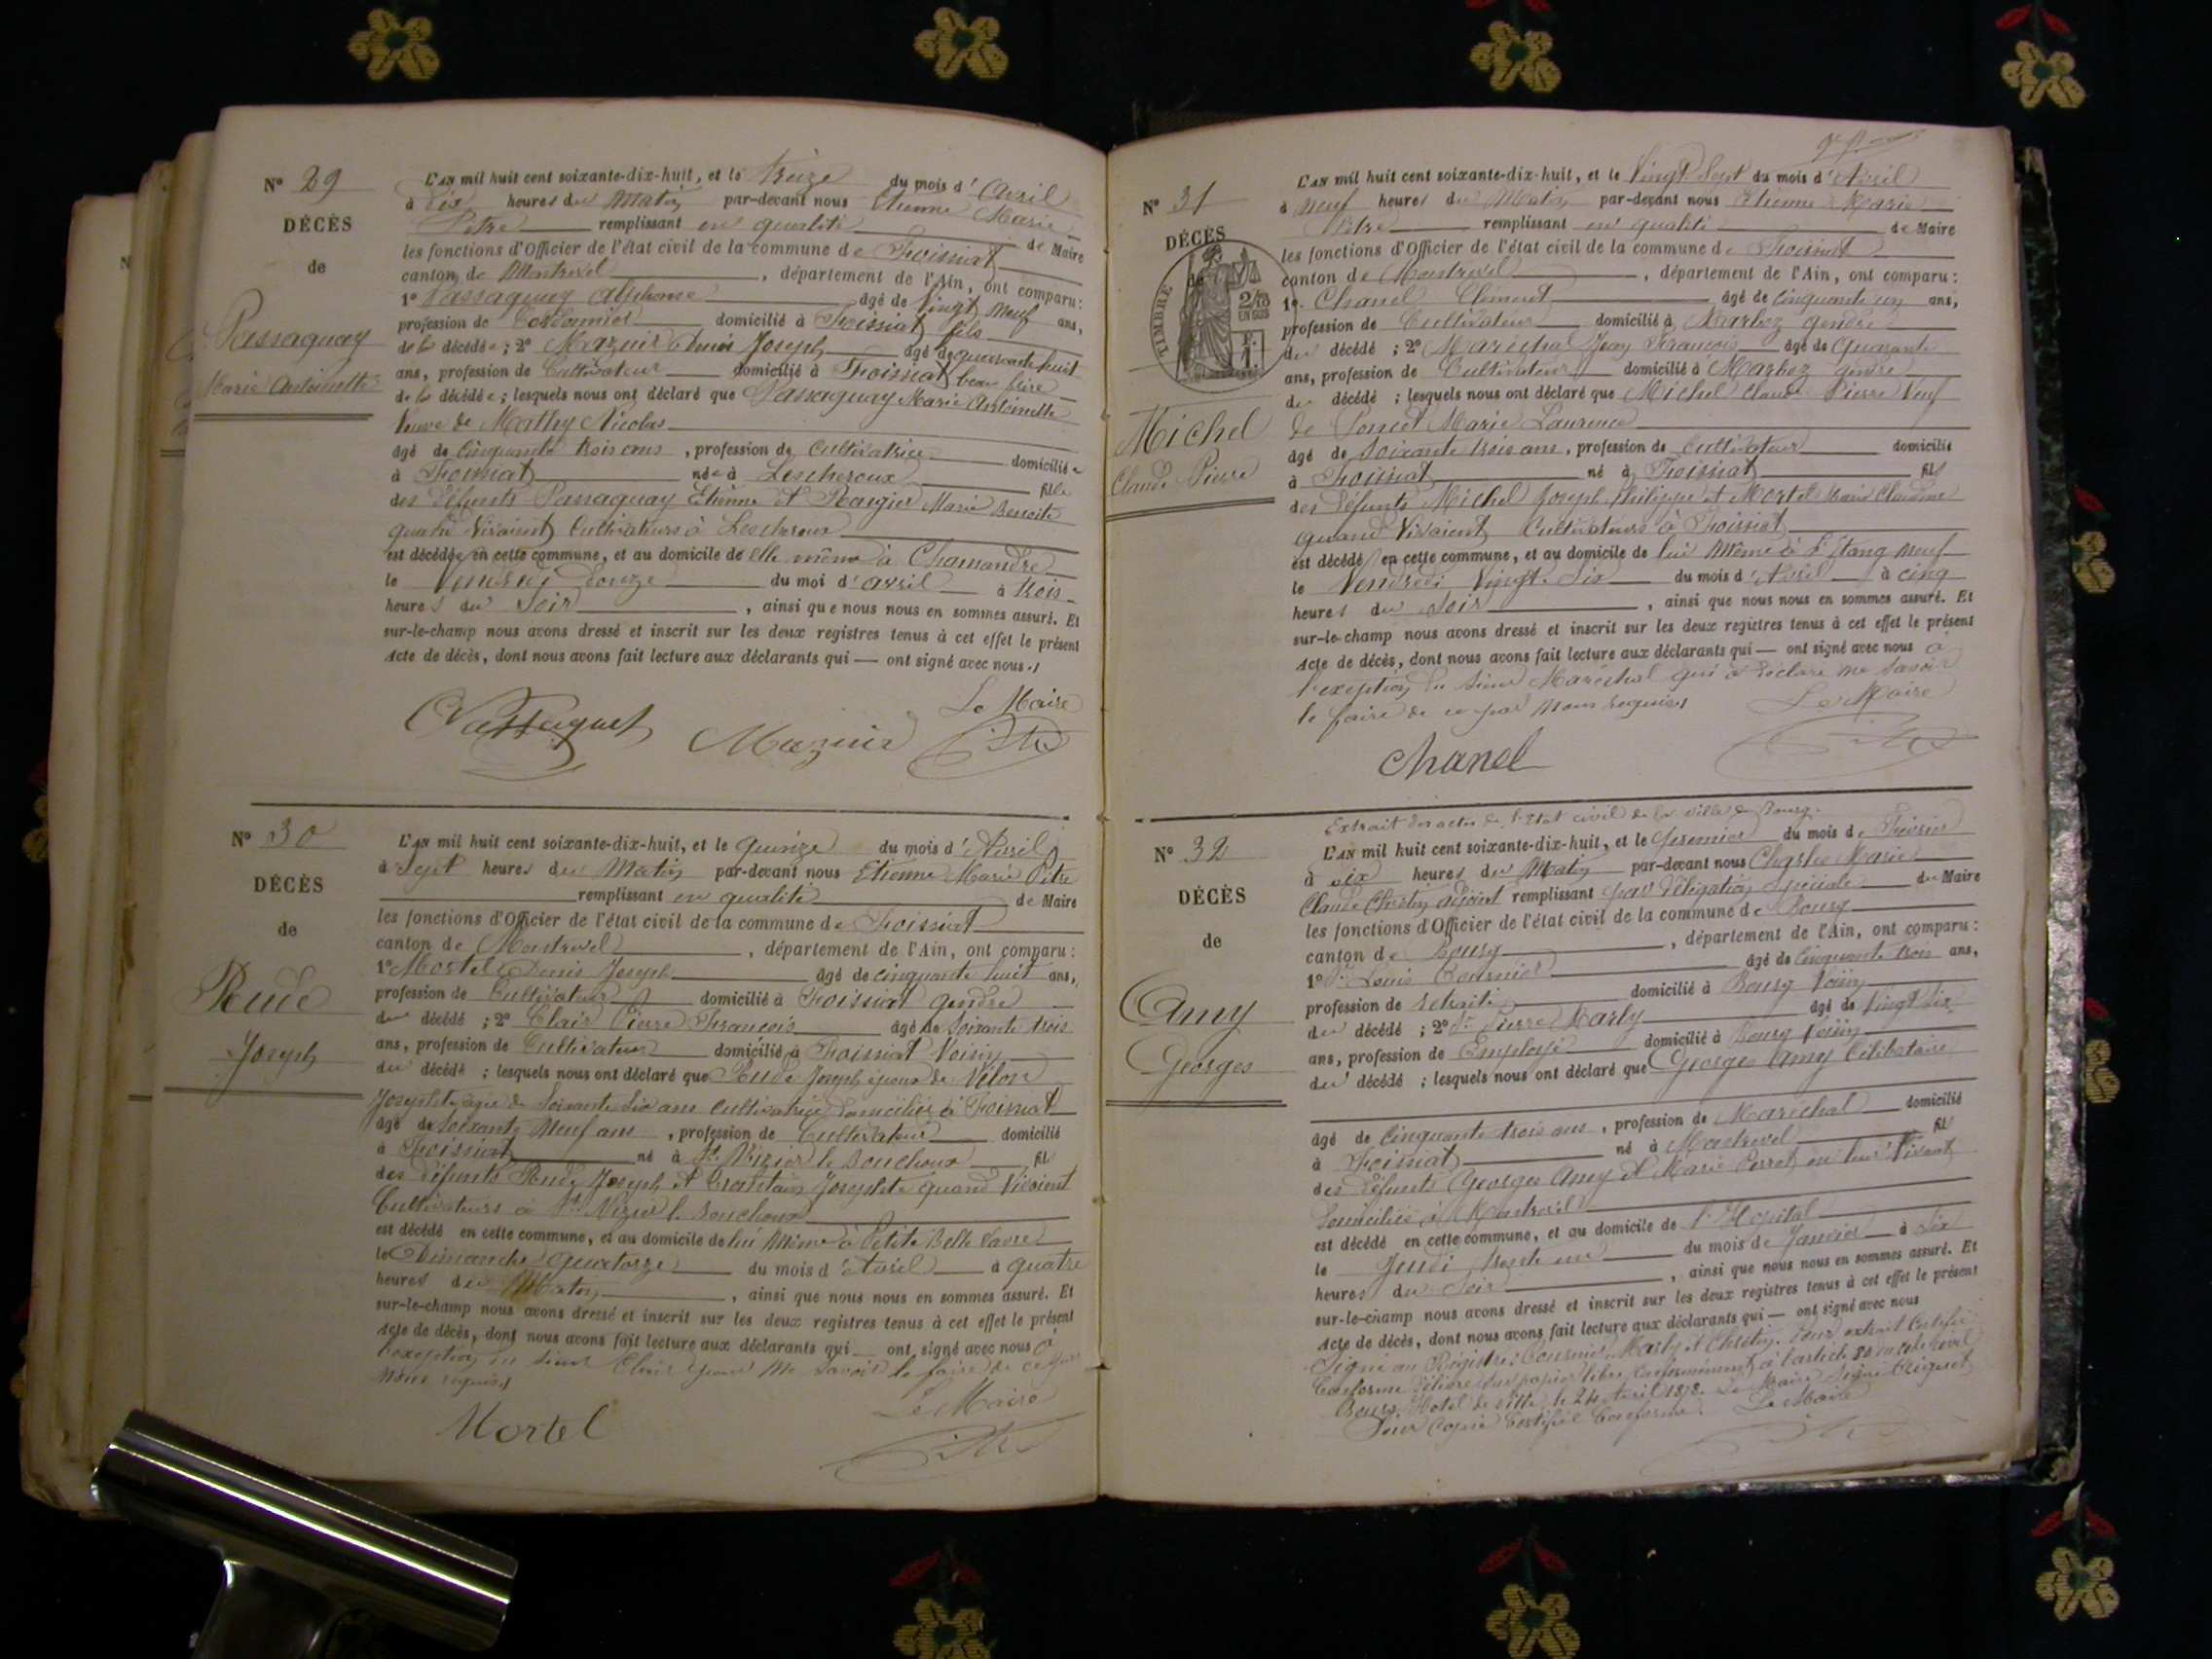 N° 29
DÉCÈS
de
Passaquay
Marie Antoinette
L'AN mil huit cent soixante-dix-huit, et le Treize du mois d'Avril
à dix heures du Matin par-devant nous Etienne Marie
Pitre remplissant en qualité de Maire
les fonctions d'Officier de l'état civil de la commune de Foissiat
canton de Montrevel, département de l'Ain, ont comparu :
1° Passaquay Alphonse âgé de Vingt Neuf ans,
profession de Cordonnier domicilié à Foissiat fils
de la décédée ; 2° Mazuir Denis Joseph âgé de quarante huit
ans, profession de Cultivateur domicilié à Foissiat beau frère
de la décédée ; lesquels nous ont déclaré que Passaquay Marie Antoinette
Veuve de Mathy Nicolas
âgé de Cinquante trois ans, profession de Cultivatrice domiciliée
à Foissiat née à Lescheroux fille
des défunts Passaquay Etienne et Marie Benoite
quand Vivaient Cultivateurs à Lescheroux
est décédée en cette commune, et au domicile de elle même à Chamandre
le Vendredi douze du moi d'avril à trois
heures du Soir, ainsi que nous nous en sommes assuré. Et
sur-le-champ nous avons dressé et inscrit sur les deux registres tenus à cet effet le présent
acte de décès, dont nous avons fait lecture aux déclarants qui — ont signé avec nous.
Le Maire
Mazuir Pitre
N° 30
DÉCÈS
de
Rude
Joseph
L'AN mil huit cent soixante-dix-huit, et le quinze du mois d'Avril
à Sept heures du Matin par-devant nous Etienne Marie Pitre
remplissant en qualité de Maire
les fonctions d'Officier de l'état civil de la commune de Foissiat
canton de Montrevel, département de l'Ain, ont comparu :
1° Mortel Denis Joseph âgé de cinquante huit ans,
profession de Cultivateur domicilié à Foissiat gendre
du décédé ; 2° Clair Pierre François âgé de Soixante trois
ans, profession de Cultivateur domicilié à Foissiat Voisin
du décédé ; lesquels nous ont déclaré que Rude Joseph époux de Vilon
Josephte âgée de Soixante dix ans Cultivatrice domiciliée à Foissiat
âgé de Soixante Neuf ans, profession de Cultivateur domicilié
à Foissiat né à St Nizier le Bouchoux fils
des défunts Rude Joseph et Josephte quand Vivaient
Cultivateurs à St Nizier le Bouchoux
est décédé en cette commune, et au domicile de lui Même à Petite Belle
le Dimanche Quatorze du mois d'Avril à quatre
heures du Matin, ainsi que nous nous en sommes assuré. Et
sur-le-champ nous avons dressé et inscrit sur les deux registres tenus à cet effet le présent
acte de décès, dont nous avons fait lecture aux déclarants qui — ont signé avec nous à
l'exeption du sieur Clair pour Ne Savoir le faire de ce par
Nous requis
Le Maire
Mortel Pitre
N° 31
DÉCÈS
de
TIMBRE
2/10
EN SUS
Michel
Claude Pierre
L'AN mil huit cent soixante-dix-huit, et le Vingt Sept du mois d'Avril
à Neuf heures du Matin par-devant nous Etienne Marie
Pitre remplissant en qualité de Maire
les fonctions d'Officier de l'état civil de la commune de Foissiat
canton de Montrevel, département de l'Ain, ont comparu :
1° Chanel Clément âgé de Cinquante un ans,
profession de Cultivateur domicilié à Marboz gendre
du décédé ; 2° Maréchal Jean François âgé de Quarante
ans, profession de Cultivateur domicilié à Marboz gendre
du décédé ; lesquels nous ont déclaré que Michel Claude Pierre Veuf
de Poncet Marie Laurence
âgé de Soixante trois ans, profession de Cultivateur domicilié
à Foissiat né à Foissiat fils
des défunts Michel Joseph Philippe et Mortel Marie Claudine
quand Vivaient Cultivateurs à Foissiat
est décédé en cette commune, et au domicile de lui Même à L'Etang Neuf
le Vendredi Vingt-Six du mois d'Avril à cinq
heures du Soir, ainsi que nous nous en sommes assuré. Et
sur-le-champ nous avons dressé et inscrit sur les deux registres tenus à cet effet le présent
acte de décès, dont nous avons fait lecture aux déclarants qui — ont signé avec nous à
l'exeption du Sieur Maréchal qui a déclaré ne Savoir
le faire de ce par Nous requis
Le Maire
Chanel Pitre
N° 32
DÉCÈS
de
Amy
Georges
Extrait des actes de l'Etat civil de la ville de Bourg.
L'AN mil huit cent soixante-dix-huit, et le premier du mois de Février
à dix heures du Matin par-devant nous Charles Marie
Claude Chrétin adjoint remplissant par délégation Spéciale du Maire
les fonctions d'Officier de l'état civil de la commune de Bourg
canton de Bourg, département de l'Ain, ont comparu :
1° Sr Louis Cournier âgé de Cinquante trois ans,
profession de retraité domicilié à Bourg Voisin
du décédé ; 2° Sr Pierre Marly âgé de Vingt six
ans, profession de Employé domicilié à Bourg Voisin
du décédé ; lesquels nous ont déclaré que Georges Amy Célibataire
âgé de Cinquante trois ans, profession de Maréchal domicilié
à Foissiat né à Montrevel fils
des défunts Georges Amy et Marie Perret en leur Vivant
domiciliés à Montrevel
est décédé en cette commune, et au domicile de l'Hopital
le Jeudi trente un du mois de Janvier à Six
heures du Soir, ainsi que nous nous en sommes assuré. Et
sur-le-champ nous avons dressé et inscrit sur les deux registres tenus à cet effet le présent
acte de décès, dont nous avons fait lecture aux déclarants qui — ont signé avec nous
Signé au Régistre : Cournier, Marly et Chrétin. Pour extrait Certifié
Conforme délivré sur papier libre Conformément à l'article 80 du Code Civil
Bourg, Hotel de Ville, le 24 Avril 1878. Le Maire Signé
Pour Copie Certifiée Conforme. Le Maire
Pitre